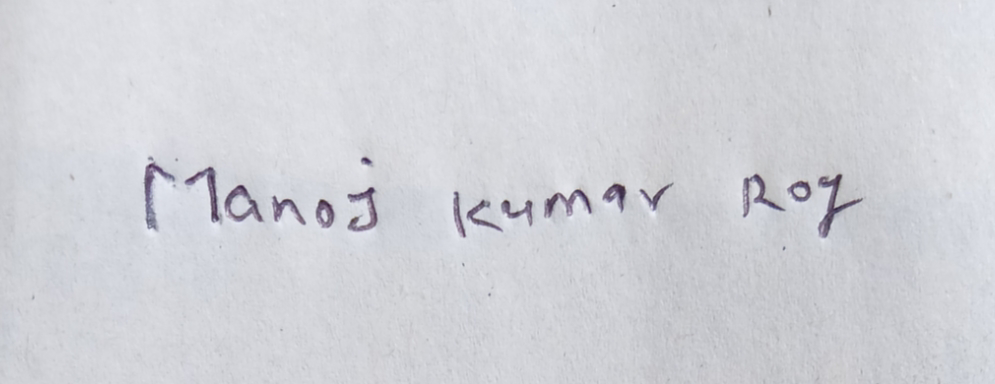 Manoj Kumar Roy